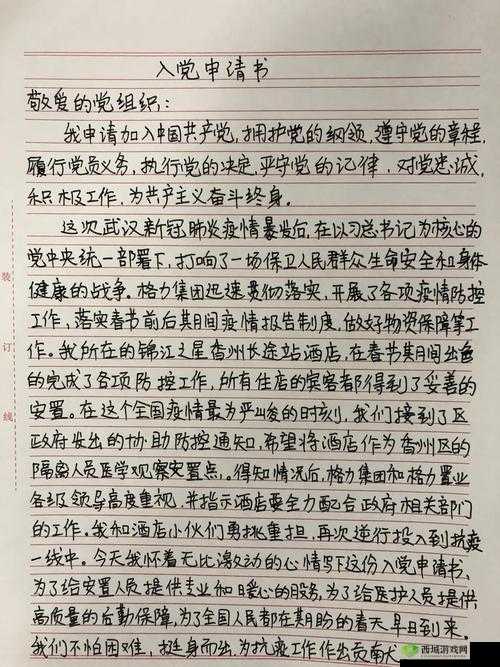 入党申请书
敬爱的党组织:
我申请加入中国共产党,拥护党的纲领,遵守党的章程,
履行党员义务,执行党的决定,严守党的记律,对党忠诚,
积极工作,为共产主义奋斗终身。
这次武汉新冠肺炎疫情暴发后,在以习总书记为核心的
党中央统一部署下,打响了一场保卫人民群众生命安全和身体
健康的战争。格力集团迅速贯彻落实,开展了各项疫情防控
工作,落实春节前后其月间疫情报告制度,做好物资保障等工
作。我所在的锦江之星香州长途站酒店,在春节其月间出色
的完成了各项防控工作,所有住店的宾客都得到了妥善的
安置。在这个全国疫情最为严峻的时刻,我们接到了区
政府发出的协助防控通知,希望将酒店作为香州区的
隔离人员医学观察安置点。得知情况后,格力集团和格力置业
各级领导高度重视,并指示酒店要全力配合政府相关部门
的工作。我和酒店小伙们勇挑重担,再次逆行投入到抗疫
一线中。今天我怀着无比激动的心情写下这份入党申请书、
为了给安置人员提供专业和日爱心的服务,为了给医护人员提供
高质量的后勤保障,为了全国人民都在期盼的春天早日到来。
我们不怕困难,挺身而出,为抗疫工作作出贡献
装
订
线
西域游戏网